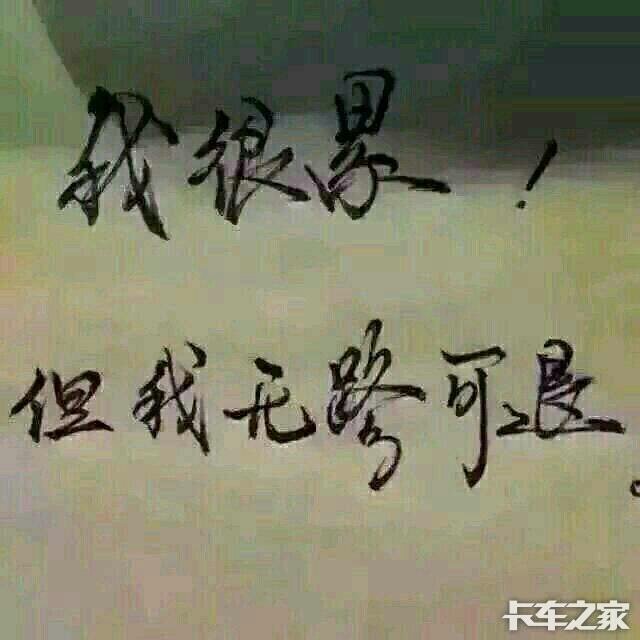 我很累！
但我无路可退。
卡车之家